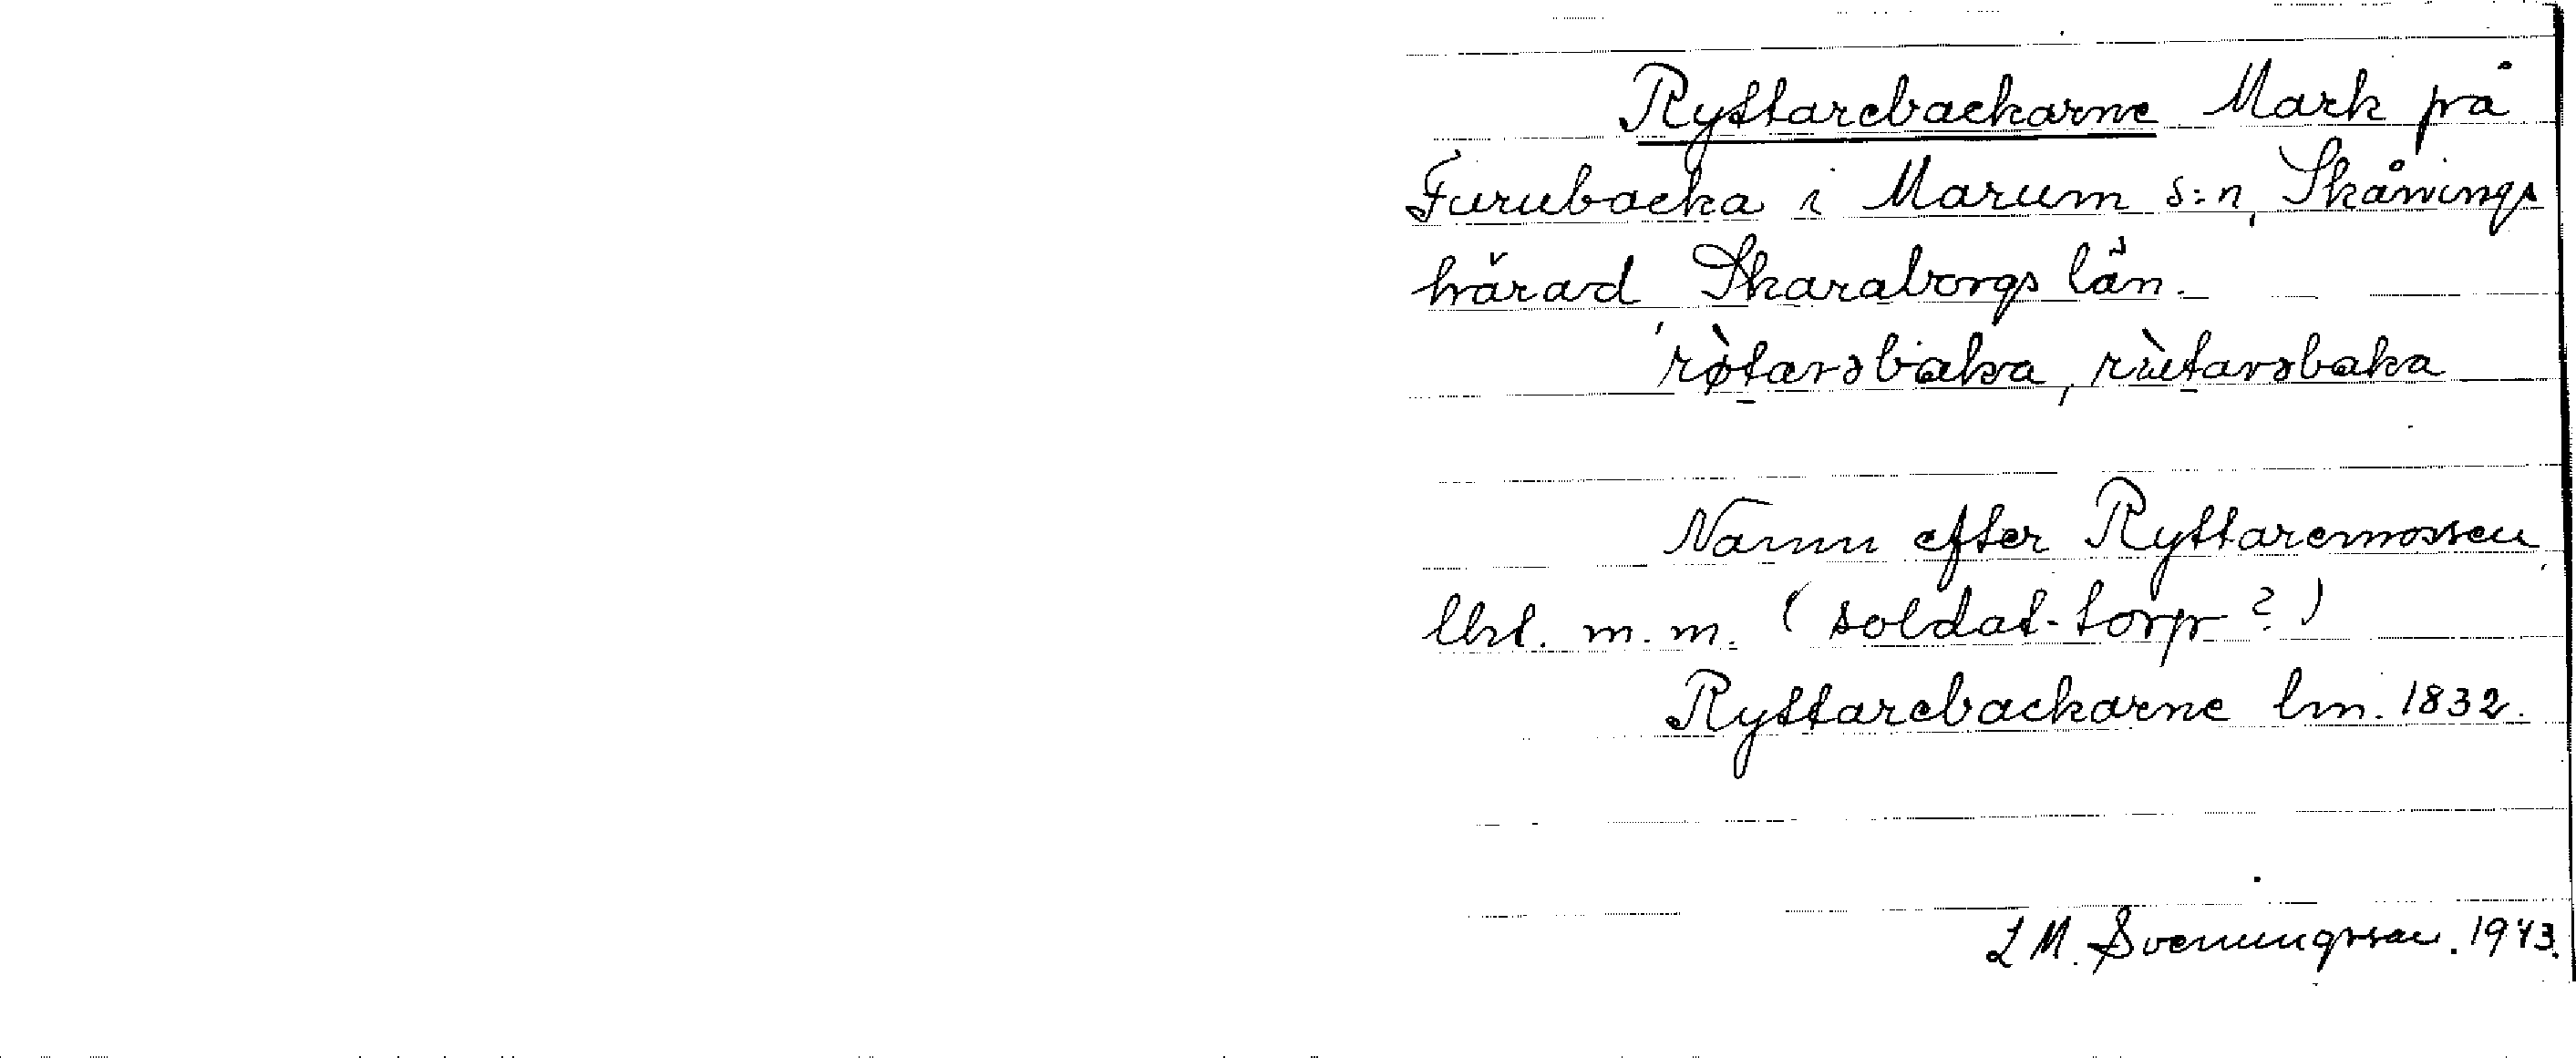 Ryttarebackarne Mark på
Furubacka i Marum s:n, Skånings
härad Skaraborgs län.
Namn efter Ryttaremossen
lht. m. m. (soldat-torp?)
Ryttarebackarne lm. 1832.
L M. Svenungsson. 1943.